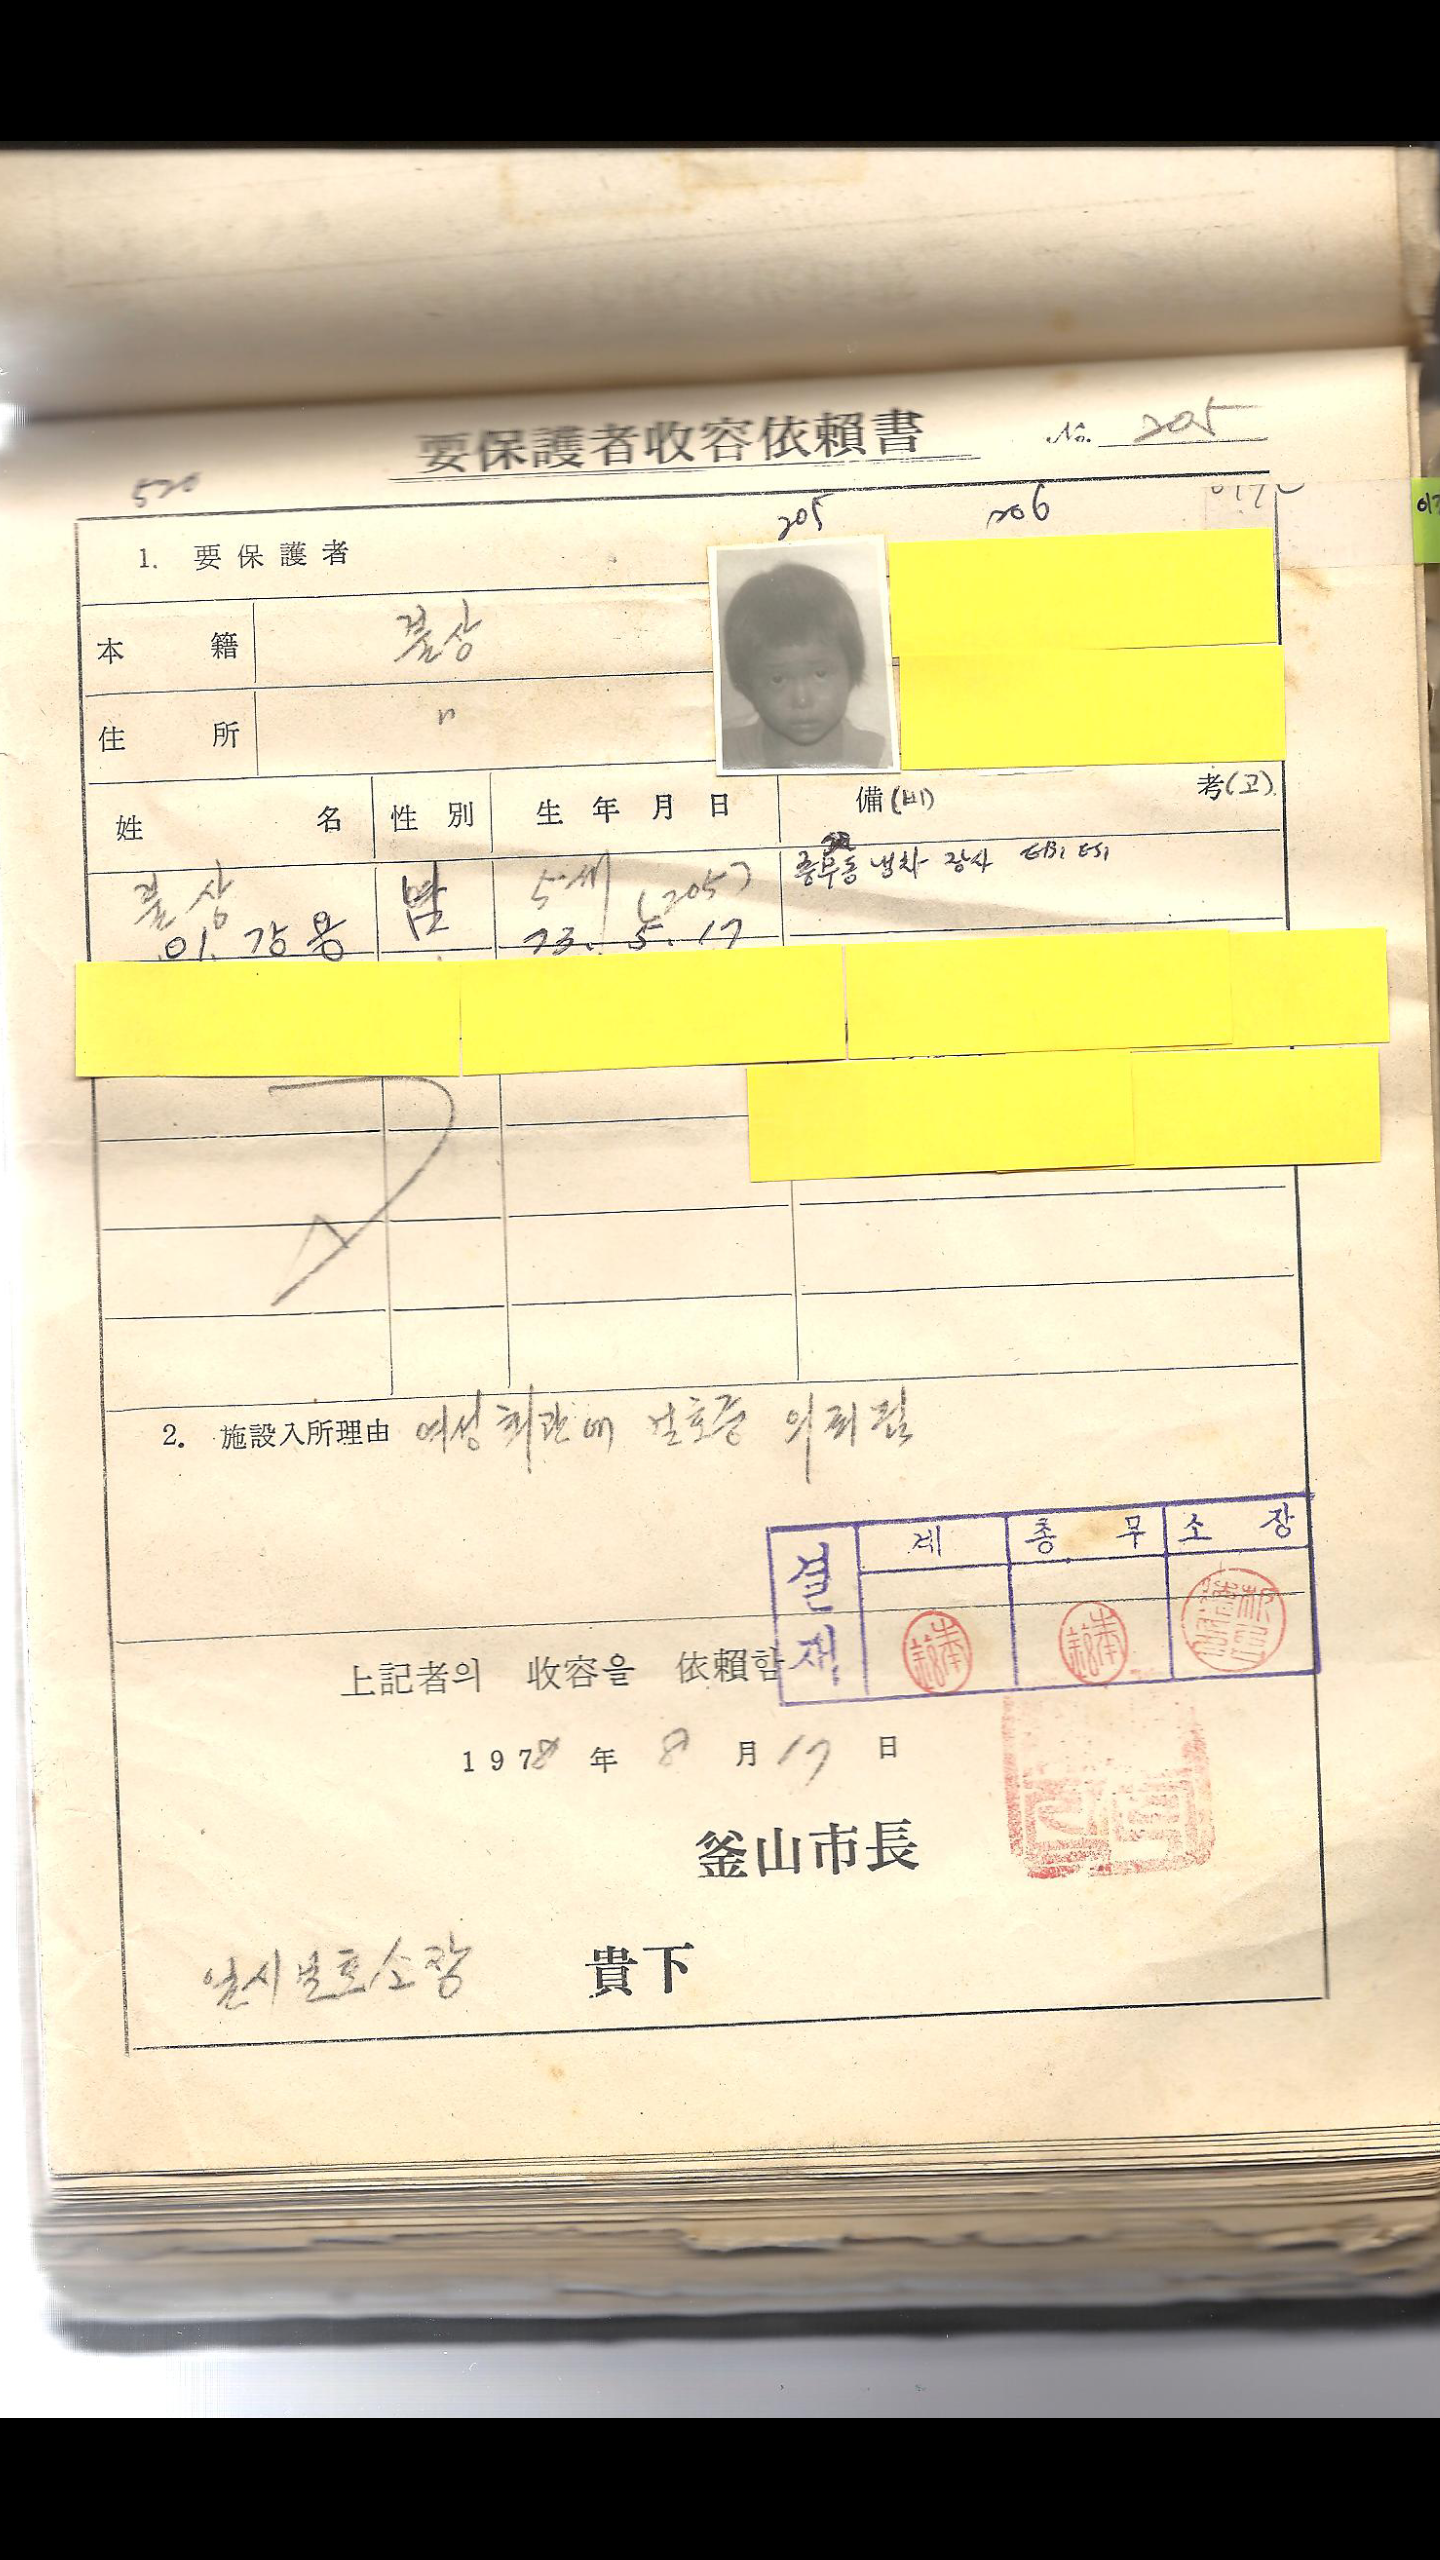 要保護者收容依頼書 No. 205
520
205 206
1. 要保護者
本籍 불상
住所 〃
姓名 性別 生年月日 備(비) 考(고)
불상 남 5세 (205)
이강용 73. 5. 17
충무동 냉차 장사
2. 施設入所理由 여성회관에 보호중 의뢰됨
결재 계 총무 소장
上記者의 收容을 依頼함
1978年 8月 17日
釜山市長
일시보호소장 貴下